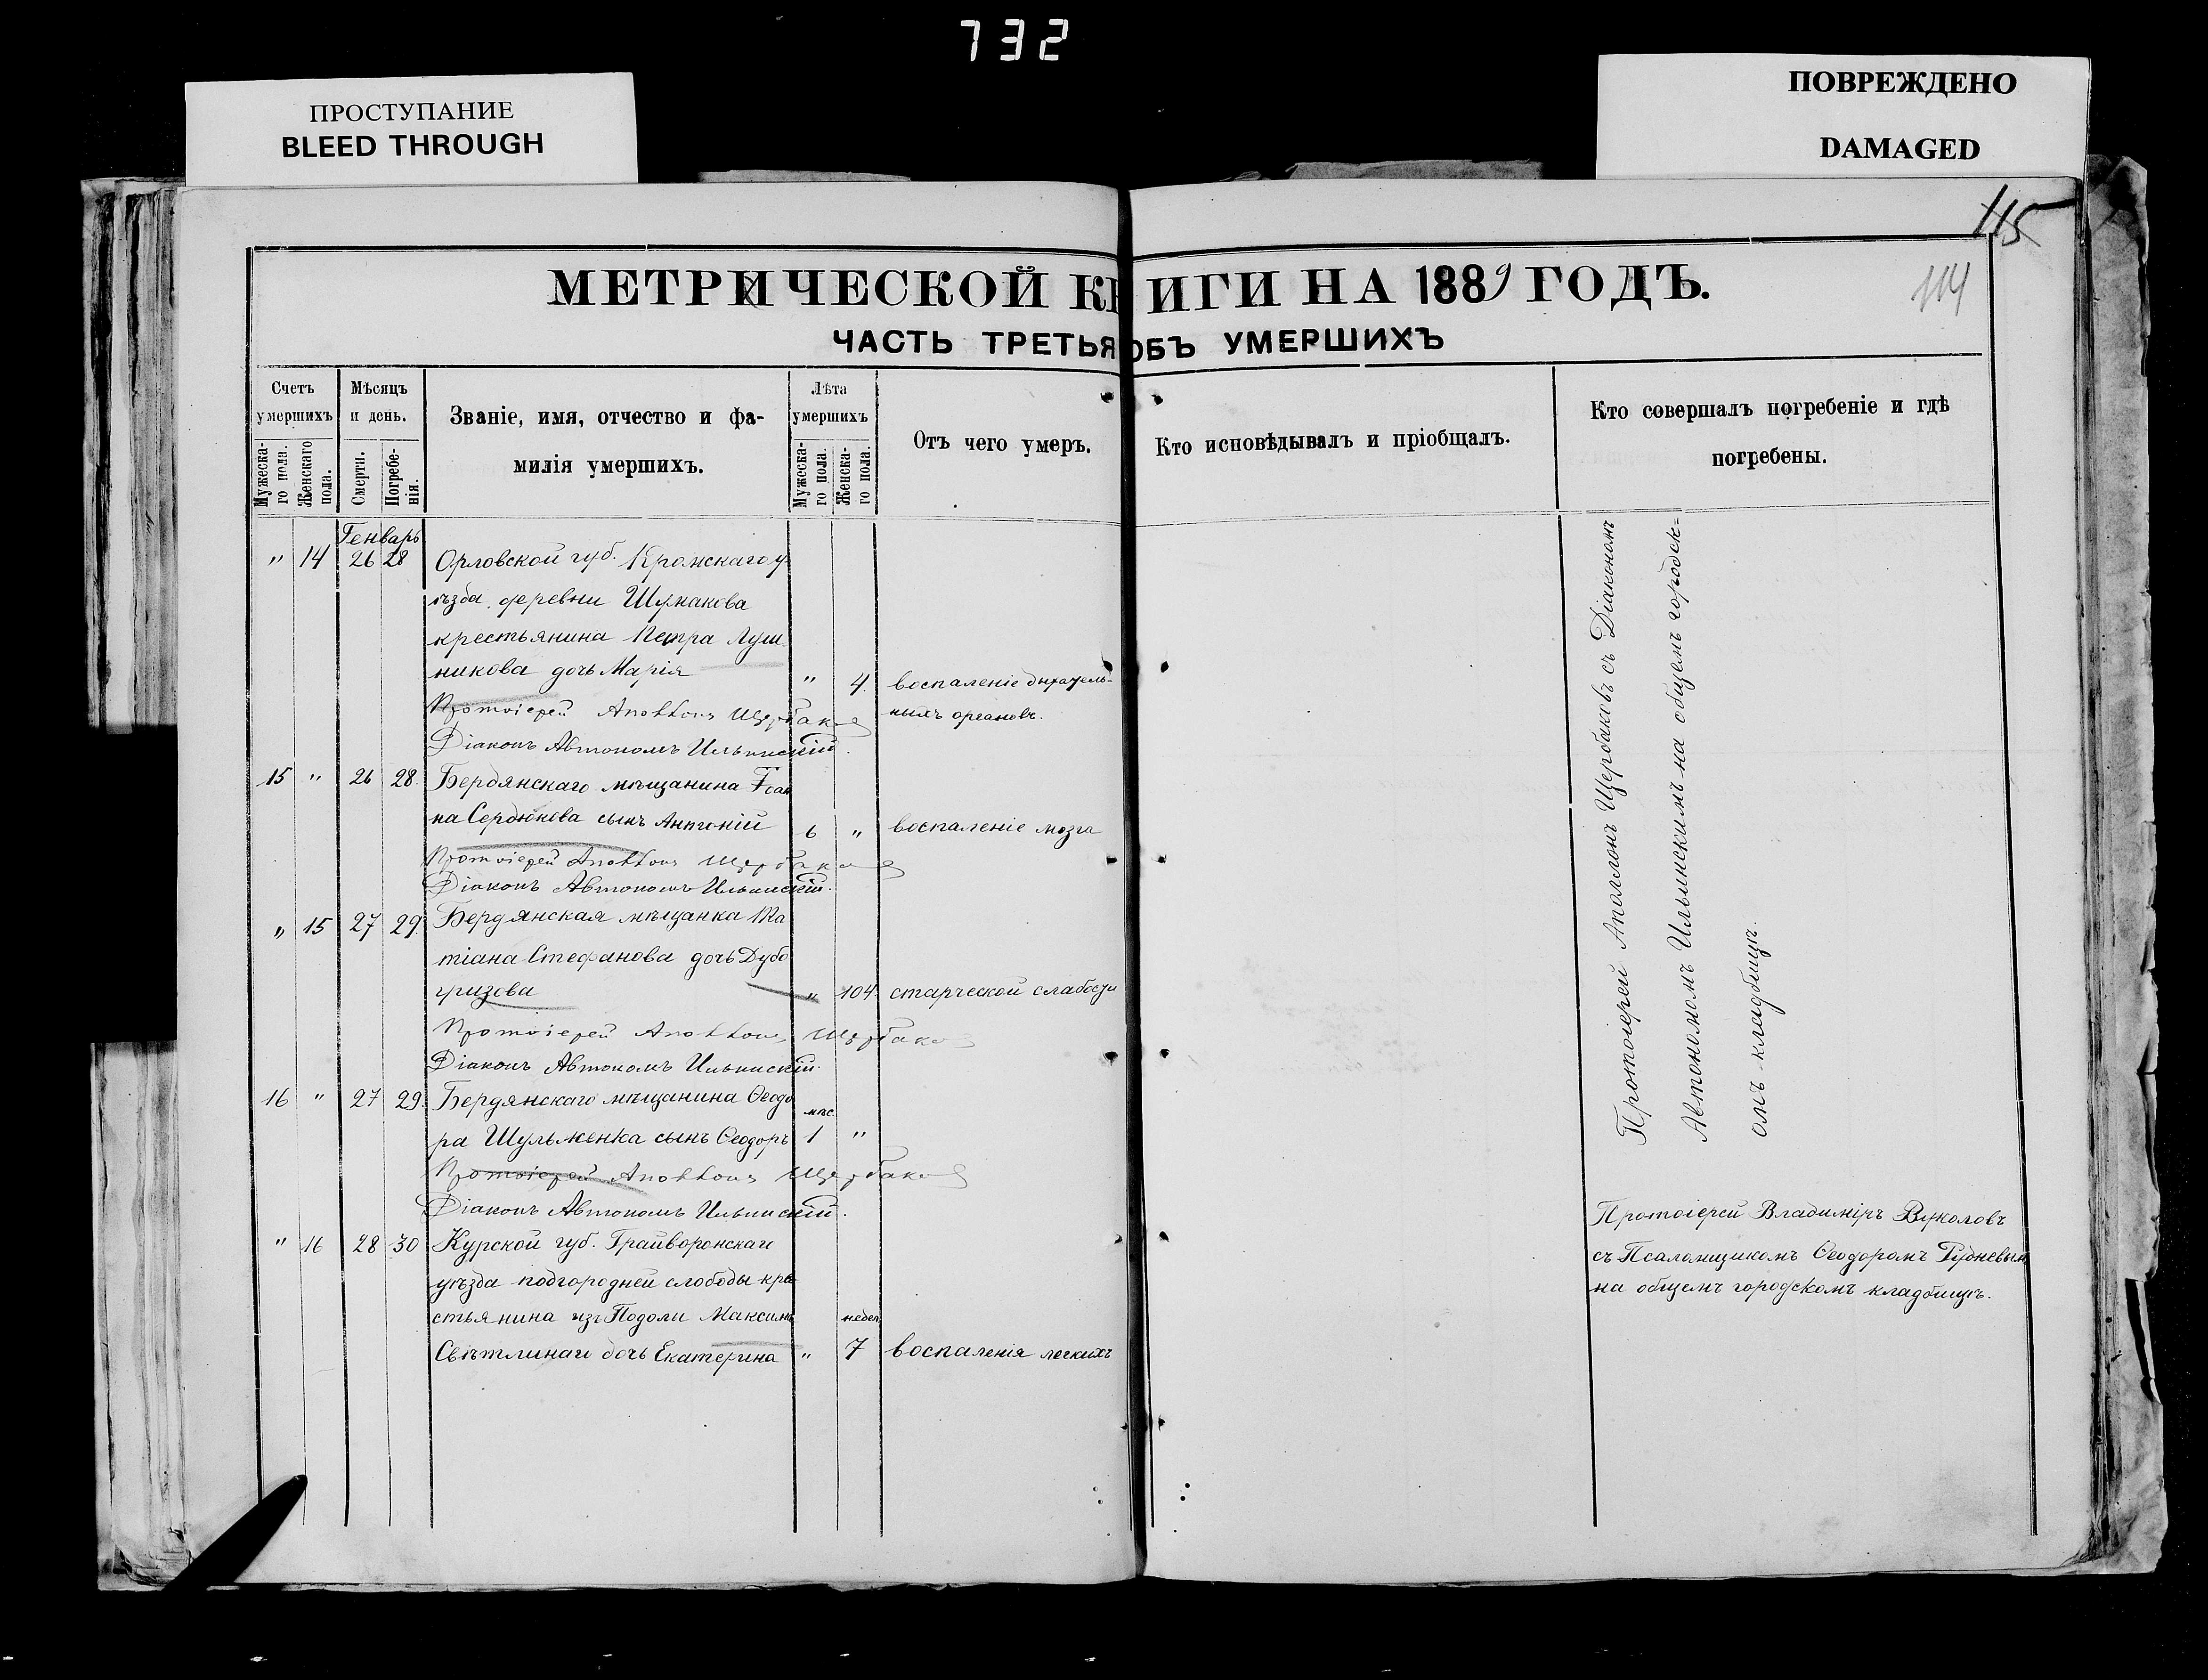 732
ПРОСТУПАНИЕ
BLEED THROUGH
ПОВРЕЖДЕНО
DAMAGED
115
114
МЕТРИЧЕСКОЙ КНИГИ НА 1889 ГОДЪ.
ЧАСТЬ ТРЕТЬЯ ОБЪ УМЕРШИХЪ
Счетъ умершихъ
Мужеска-го пола.
Женскаго пола.
Мѣсяцъ и день.
Смерти.
Погребе-нія.
Званіе, имя, отчество и фа-
милія умершихъ.
Лѣта умершихъ
Мужеска-го пола.
Женска-го пола.
Отъ чего умеръ.
Кто исповѣдывалъ и пріобщалъ.
Кто совершалъ погребеніе и гдѣ
погребены.
Генварь
" 14 26 28 Орловской губ. Кромскаго у-
ѣзда, деревни Шумакова
крестьянина Петра Луш
никова дочь Марія " 4. воспаленіе дыхатель-
ныхъ органовъ.
Протоіерей Аполлонъ Щербаковъ
Діаконъ Автономъ Ильинскій.
15 " 26 28. Бердянскаго мѣщанина Іоан
на Сердюкова сынъ Антоній 6 " воспаленіе мозга
Протоіерей Аполлонъ Щербаковъ
Діаконъ Автономъ Ильинскій.
" 15 27 29. Бердянская мѣщанка Та
тіана Стефанова дочь Дубо
гризова " 104. старческой слабости
Протоіерей Аполлонъ Щербаковъ
Діаконъ Автономъ Ильинскій.
16 " 27 29. Бердянскаго мѣщанина Ѳеодо
ра Шульженка сынъ Ѳеодоръ мѣс. 1 "
Протоіерей Аполлонъ Щербаковъ
Діаконъ Автономъ Ильинскій.
" 16 28 30 Курской губ. Грайворонскаго
уѣзда подгородней слободы кре
стьянина изъ Подоли Максима недел.
Свѣтлинаго дочь Екатерина " 7 воспаленія легкихъ
Протоіерей Аполлонъ Щербаковъ съ Діакономъ
Автономомъ Ильинскимъ на общемъ городск-
омъ кладбищѣ.
Протоіерей Владиміръ Вуколовъ
съ Псаломщикомъ Ѳеодоромъ Рудневымъ
на общемъ городскомъ кладбищѣ.